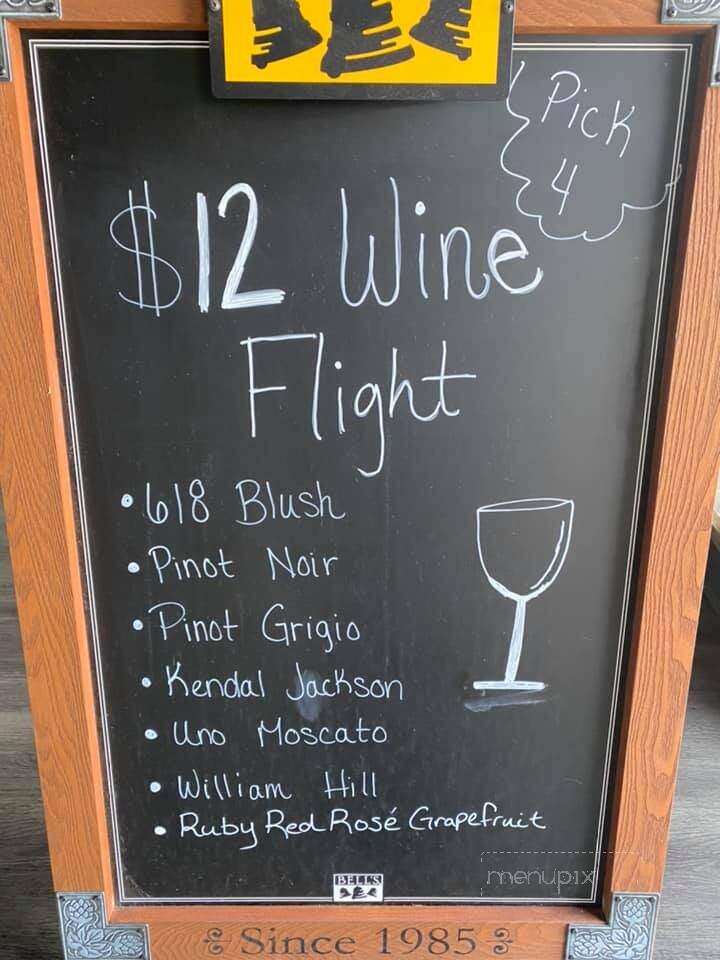 Pick
4
$12 Wine
Flight
• 618 Blush
• Pinot Noir
• Pinot Grigio
• Kendal Jackson
• Uno Moscato
• William Hill
• Ruby Red Rosé Grapefruit
BELL'S
menupix
Since 1985